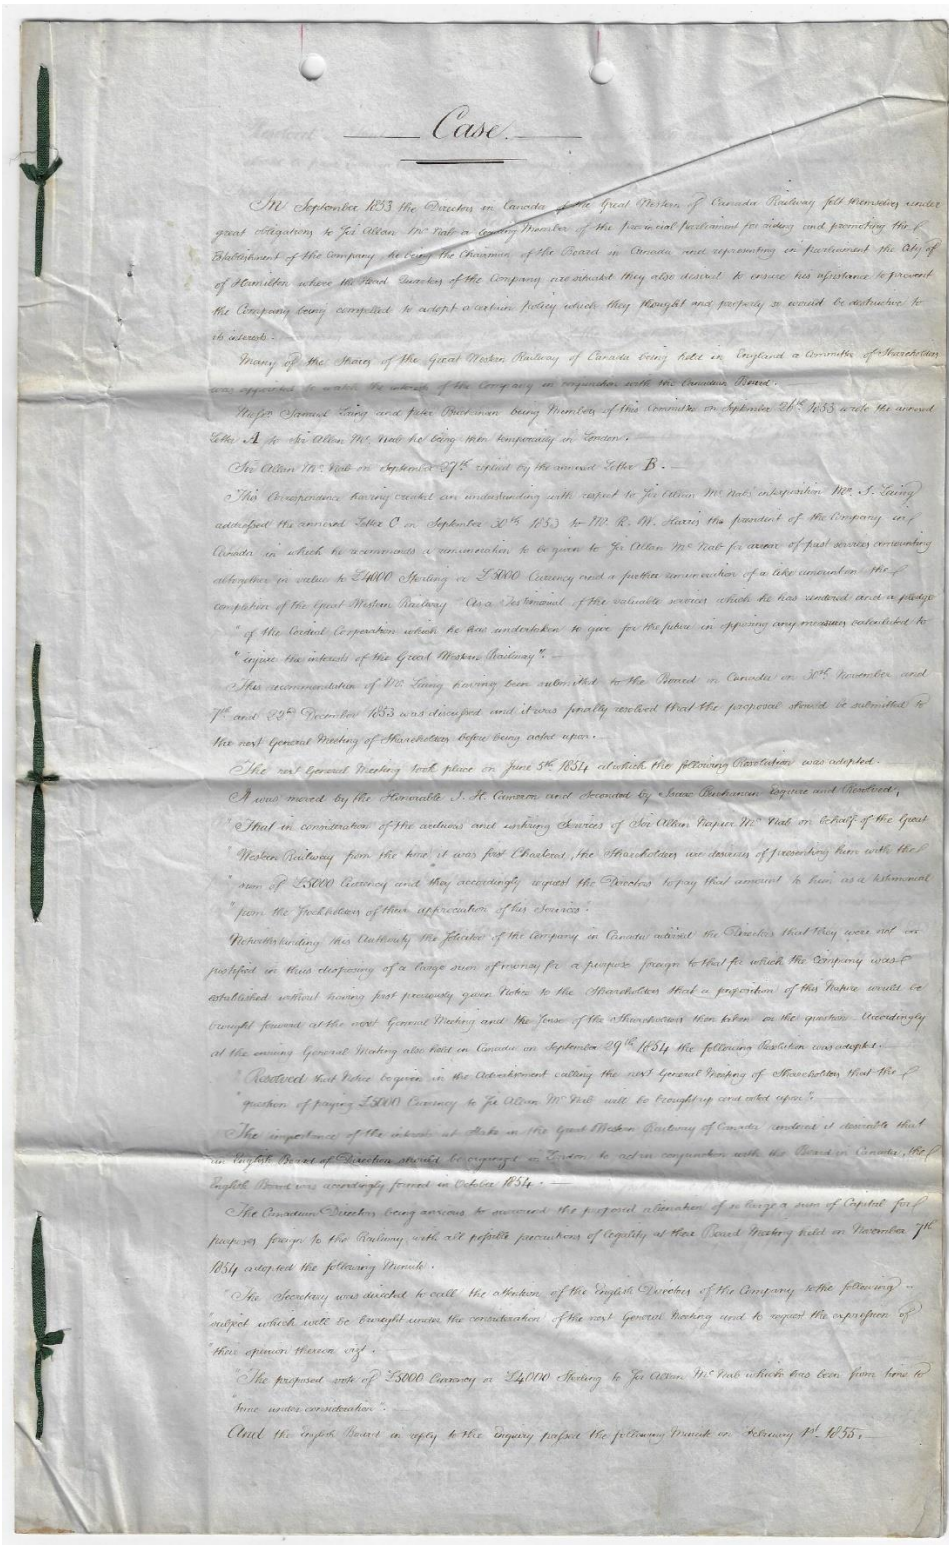 Case.
In September 1853 the Directors in Canada of the Great Western of Canada Railway felt themselves under
great obligations to Sir Allan Mc Nab a leading Member of the provincial Parliament for aiding and promoting the
Establishment of the Company he being the Chairman of the Board in Canada and representing in parliament the City of
of Hamilton where the Head Quarters of the Company are situated they also desired to ensure his assistance to prevent
the Company being compelled to adopt a certain Policy which they thought and properly so would be destructive to
its interests.
Many of the Shares of the Great Western Railway of Canada being held in England a Committee of Shareholders
was appointed to watch the interests of the Company in conjunction with the Canadian Board.
Messrs Samuel Laing and Peter Buchanan being Members of this Committee on September 26th 1853 wrote the annexed
Letter A to Sir Allan Mc Nab he being then temporarily in London.
Sir Allan Mc Nab on September 27th replied by the annexed Letter B.
This Correspondence having created an understanding with respect to Sir Allan Mc Nab's interposition Mr. S. Laing
addressed the annexed Letter C on September 30th 1853 to Mr. R. W. Harris the president of the Company in
Canada in which he recommends a remuneration to be given to Sir Allan Mc Nab for of past services amounting
altogether in value to £4000 Sterling or £5000 Currency and a further remuneration of a like amount on the
completion of the Great Western Railway "As a Testimonial of the valuable services which he has rendered and a pledge
"of the Cordial Cooperation which he has undertaken to give for the future in opposing any measures calculated to
"injure the interests of the Great Western Railway".
This recommendation of Mr. Laing having been submitted to the Board in Canada on 30th November and
7th and December 1853 was discussed and it was finally resolved that the proposal should be submitted to
the next General Meeting of Shareholders before being acted upon.
The next General Meeting took place on June 5th 1854 at which the following Resolution was adopted.
It was moved by the Honorable J. H. Cameron and Seconded by Isaac Buchanan Esquire and Resolved,
"That in consideration of the arduous and untiring Services of Sir Allan Napier Mc Nab on behalf of the Great
"Western Railway from the time it was first Chartered, the Shareholders are desirous of presenting him with the
"sum of £5000 Currency and they accordingly request the Directors to pay that amount to him as a testimonial
"from the Stockholders of their appreciation of his Services".
Notwithstanding this Authority the Solicitor of the Company in Canada advised the Directors that they were not
justified in thus disposing of a large sum of money for a purpose foreign to that for which the Company was
established without having first previously given Notice to the Shareholders that a proposition of this Nature would be
brought forward at the next General Meeting and the Sense of the Shareholders then taken on the question. Accordingly
at the ensuing General Meeting also held in Canada on September 29th 1854 the following Resolution was adopted.
"Resolved that Notice be given in the Advertisement calling the next General Meeting of Shareholders that the
"question of paying £5000 Currency to Sir Allan Mc Nab will be brought up and acted upon".
The importance of the interests at Stake in the Great Western Railway of Canada rendered it desirable that
an English Board of Direction should be organized in London to act in conjunction with the Board in Canada, the
English Board was accordingly formed in October 1854.
The Canadian Directors being anxious to surround the proposed alienation of so large a sum of Capital for
purposes foreign to the Railway, with all possible precautions of legality at their Board Meeting held in November 7th
1854 adopted the following Minute.
"The Secretary was directed to call the attention of the English Directors of the Company to the following
"subject which will be brought under the consideration of the next General Meeting and to request the expression of
"their opinion thereon vizt.
"The proposed vote of £5000 Currency or £4000 Sterling to Sir Allan Mc Nab which has been from time to
"time under consideration".
And the English Board in reply to the inquiry passed the following Minute on February 1st. 1855.